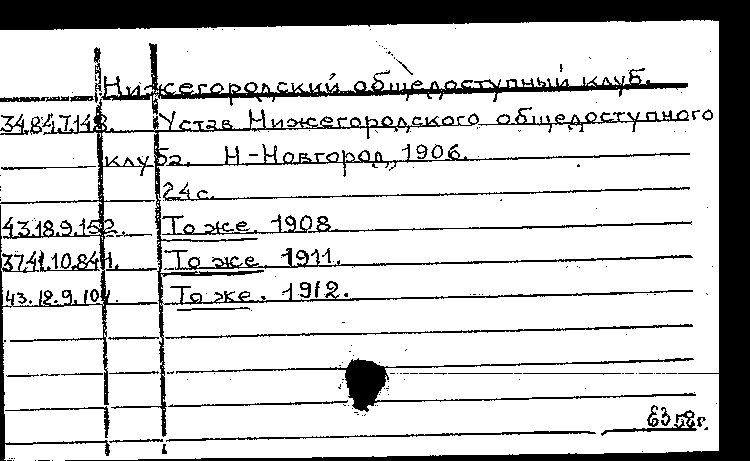 Нижегородский общедоступный клуб.
34.84.7.148. Устав Нижегородского общедоступного
клуба. Н-Новгород, 1906.
24 с.
43.18.9.152. То же. 1908
37.41.10.841. То же. 1911.
43.18.9.104. То же. 1912.